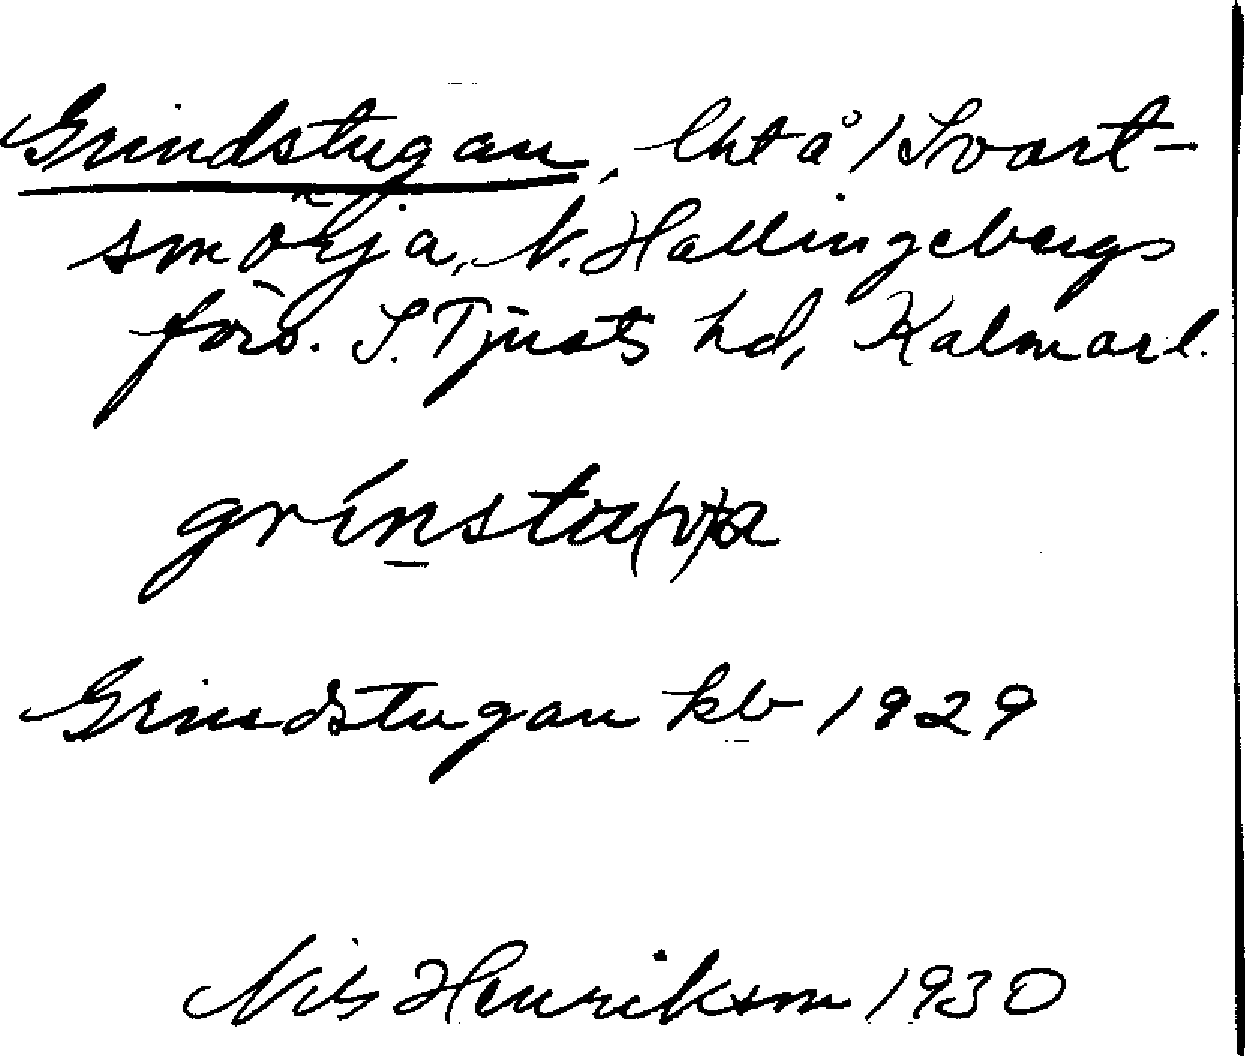 Grindstugan, lht å 1 Svart-
smörja, N. Hallingebergs
förs. S. Tjusts hd, Kalmar l.
grínstu(v)a
Grindstugan kb 1929
Nils Henriksson 1930